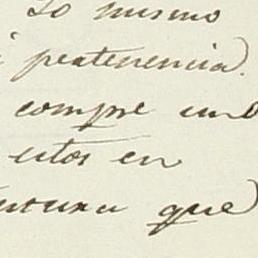 Lo mismo
i pertenencia.
compre un
estos en
que